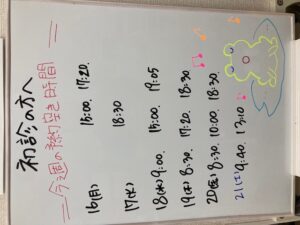 初診の方へ
＝今週の予約空き時間＝
16(月) 15:00. 17:20.
17(火) 18:30
18(水) 9:00. 15:00. 17:05
19(木) 8:30. 17:20. 18:30
20(金) 8:30. 10:00. 18:30.
21(土) 9:40. 13:10